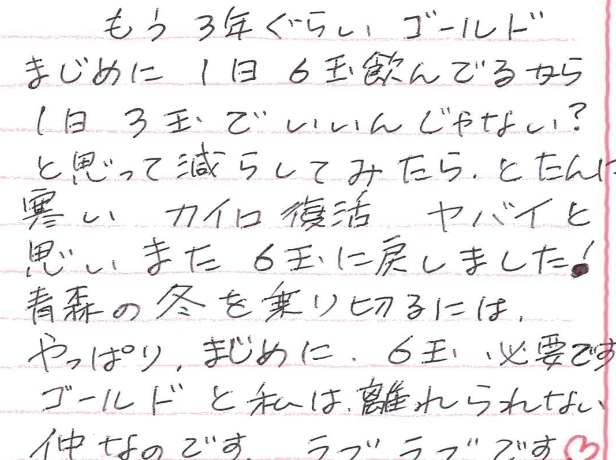 もう 3年ぐらい ゴールド
まじめに 1日 6玉飲んでるから
1日 3玉でいいんじゃない?
と思って減らしてみたら、とたんに
寒い カイロ復活 ヤバイと
思いまた 6玉に戻しました!
青森の冬を乗り切るには、
やっぱり、まじめに、6玉必要です
ゴールドと私は、離れられない
仲なのです。 ラブラブです♡